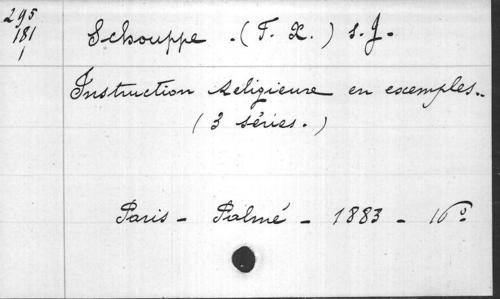 295
181
1
Schouppe . (F. X.) s.J.
Instruction religieuse en exemples..
(3 séries.)
Paris - Palmé - 1883 - 16°